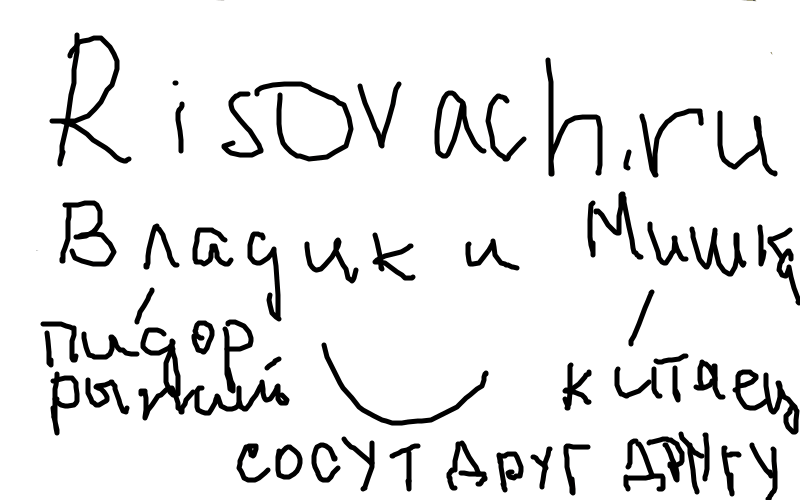 Risovach.ru
Владик и Мишка
пидор
рыжий китаец
сосут друг другу